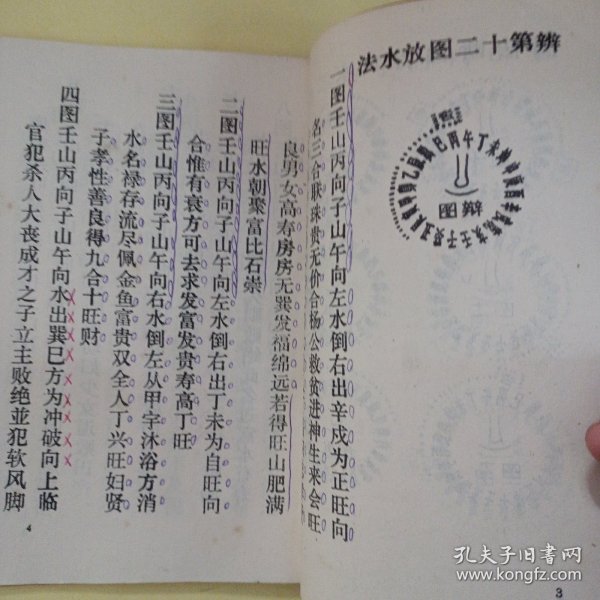 辨第十二图放水法
巳丙午丁未坤申
壬子癸
辩图
一图壬山丙向子山午向左水倒右出辛戍为正旺向
名三合联珠贵无价合杨公救贫进神生来会旺
良男女高寿房房无巽发福绵远若得旺山肥满
旺水朝聚富比石崇
3
二图壬山丙向子山午向左水倒右出丁未为自旺向
合惟有衰方可去求发富发贵寿高丁旺
三图壬山丙向子山午向右水倒左从甲字沐浴方消
水名禄存流尽佩金鱼富贵双全人丁兴旺妇贤
子孝性善良得九合十旺财
四图壬山丙向子山午向水出巽巳方为冲破向上临
官犯杀人大丧成才之子立主败绝並犯软风脚
4
孔夫子旧书网
www.kongfz.com